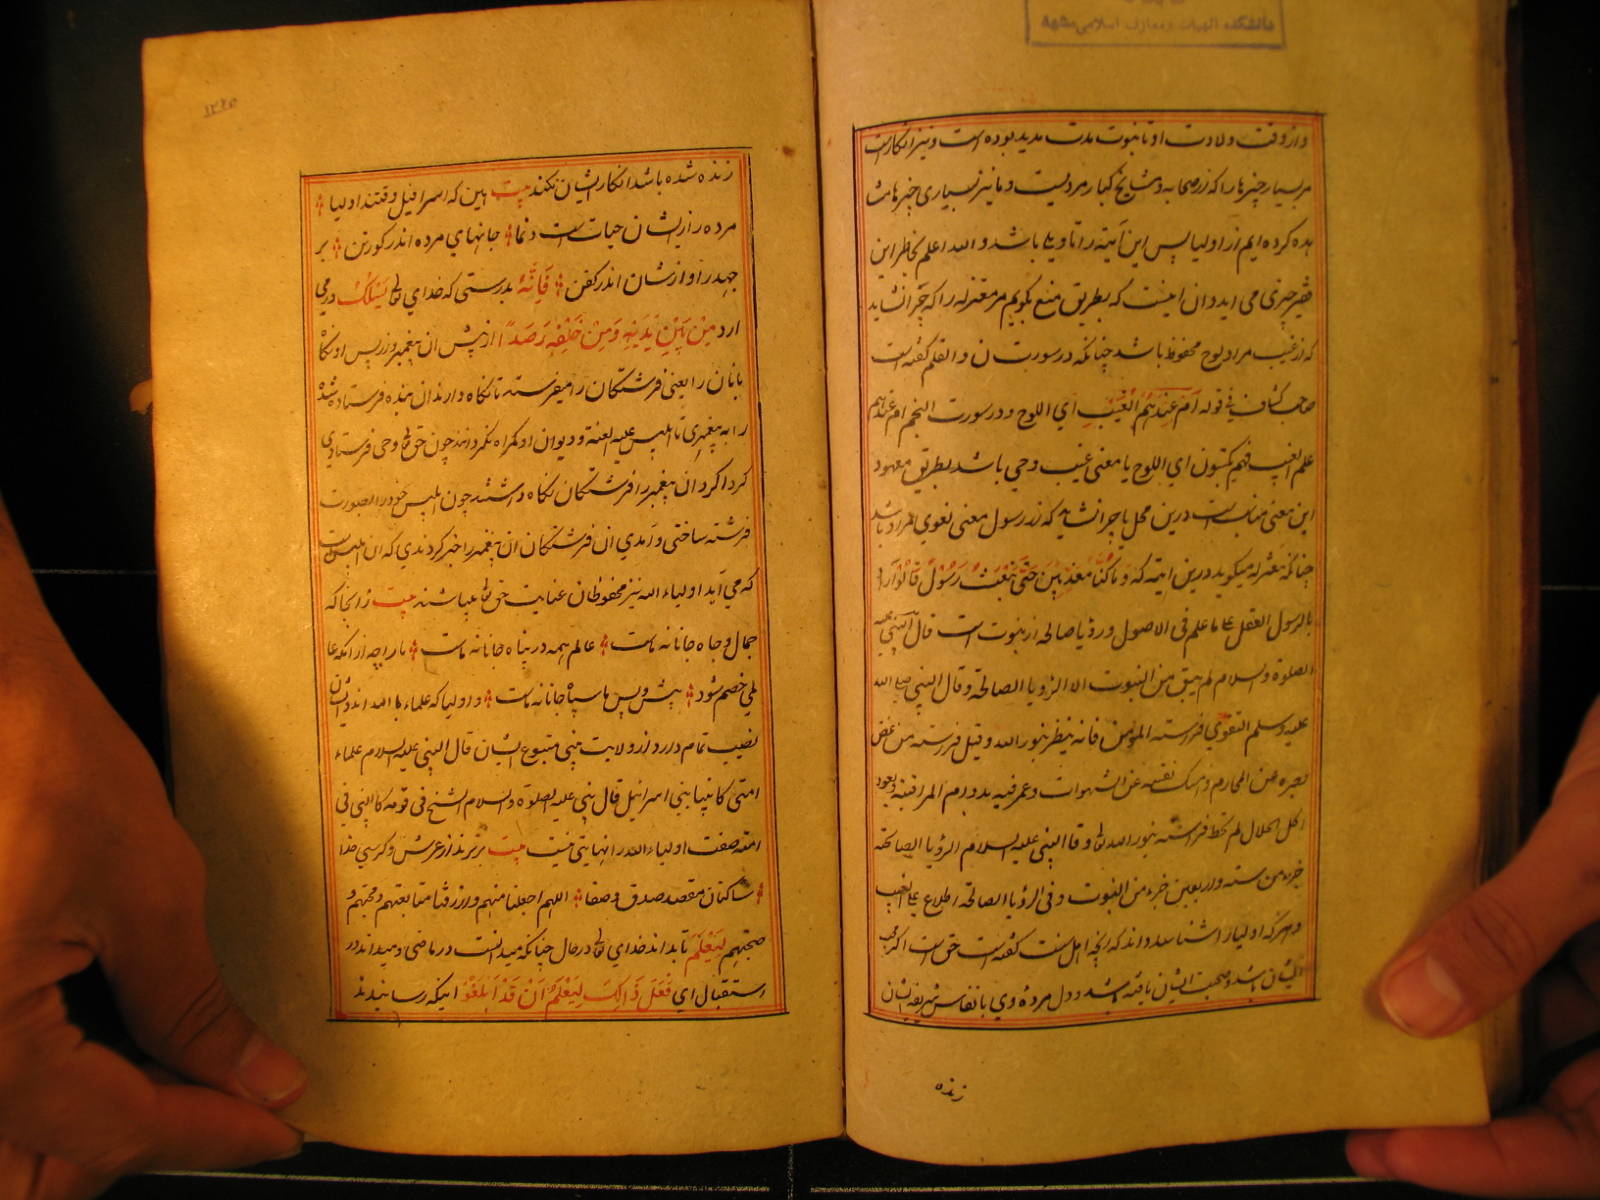 دانشکده الهیات و معارف اسلامی مشهد
و از وقت ولادت او تا نبوت مدت مدید بوده است و نیز انکار است
مر بسیار چیزها را که از صحابه و مشایخ کبار مرویست و ما نیز بسیاری چیزها مشا
هده کرده ایم از اولیا پس این آیته را تاویلی باشد و الله اعلم بخاطر این
فقیر چیزی می اید و ان اینست که بطریق منع بکوییم مر معتزله را که چرا نشاید
که از غیب مراد لوح محفوظ باشد چنانکه در سورت ن و القلم کفته است
صاحب کشاف فی قوله ام عندهم الغیب ای اللوح و در سورت النجم ام عندهم
علم الغیب فهم یکتبون ای اللوح یا معنی غیب وحی باشد بطریق معهود
این معنی مناسب است درین محل یا چرا نشاید که از رسول معنی لغوی مراد باشد
چنانکه معتزله میکوید درین ایته که و ما کنا معذبین حتی نبعث رسولا قالوا اراد
بالرسول العقل علی ما علم فی الاصول و رؤیا صالحه از نبوت است قال النبی علیه
الصلوة و السلام لم یبق من النبوت الا الرؤیا الصالحة و قال النبی صلی الله
علیه و سلم اتقوا فراسته المؤمن فانه ینظر بنور الله و قیل فراسته من غض
بصره عن المحارم و امسک نفسه عن الشهوات و عمر فیه بدوام المراقبته و تعود
اکل الحلال لم یخط فراسته بنور الله تعالی و قال النبی علیه السلام الرؤیا الصالحته
جزء من سته و اربعین جزء من النبوت و فی الرؤیا الصالحته اطلاع علی الغیب
و هر که اولیا را شناسد داند که انچه اهل سنت کفته است حق است اکر محب
ایشان باشد و صحبت ایشان یافته باشد و دل مرده وی با نفاس شریفه ایشان
زنده
۱۲۲۵
زنده شده باشد انکار ایشان نکند بیت هین که اسرافیل وقتند اولیا
مرده را ز ایشان حیات است و نما جانهای مرده اندر کور تن بر
جهد ز آواز شان اندر کفن فانه بدرستی که خدای تعالی یسلک در می
ارد من بین یدیه و من خلفه رصدا از پیش ان پیغمبر و از پس او نکاه
بانان را یعنی فرشتکان را میفرسته تا نکاه دارند ان بنده فرستاده شده
را به پیغمبری تا ابلیس علیه العنة و دیوان او کمراه نکردانند چون حق تعالی وحی فرستادی
کرداکرد ان پیغمبر را فرشتکان نکاه داشتنه چون ابلیس خود را بصورت
فرشته ساختی و آمدی ان فرشتکان ان پیغمبر را خبر کردندی که ان ابلیس است
که می آید اولیاء الله نیز محفوظان عنایت حق تعالی میباشند بیت ز انجا که
جمال و جاه جانانه ماست عالم همه در پناه جانانه ماست ما را چه از انکه عا
لمی خصم شود پیش و پس ما سپاه جانانه ماست و اولیا که علماء بالله اند ایشان
نصیب تمام دارد از ولایت نبی متبوع ایشان قال النبی علیه السلام علماء
امتی کانبیا بنی اسرائیل قال نبی علیه الصلوة و السلام الشیخ فی قومه کالنبی فی
امته صفت اولیاء الله را نهایتی نیست بیت برترند از عرش و کرسی خدا
ساکنان مقعد صدق و صفا اللهم اجعلنا منهم و ارزقنا متابعتهم و محبتهم و
صحبتهم لیعلم تا بداند خدای تعالی در حال چنانکه میدانست در ماضی و میداند در
استقبال ای فعل ذالک لیعلم ان قد ابلغوا اینکه رسانیدند